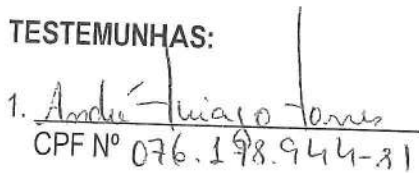 TESTEMUNHAS:
1. André Thiago Torres
CPF Nº 076.198.944-81